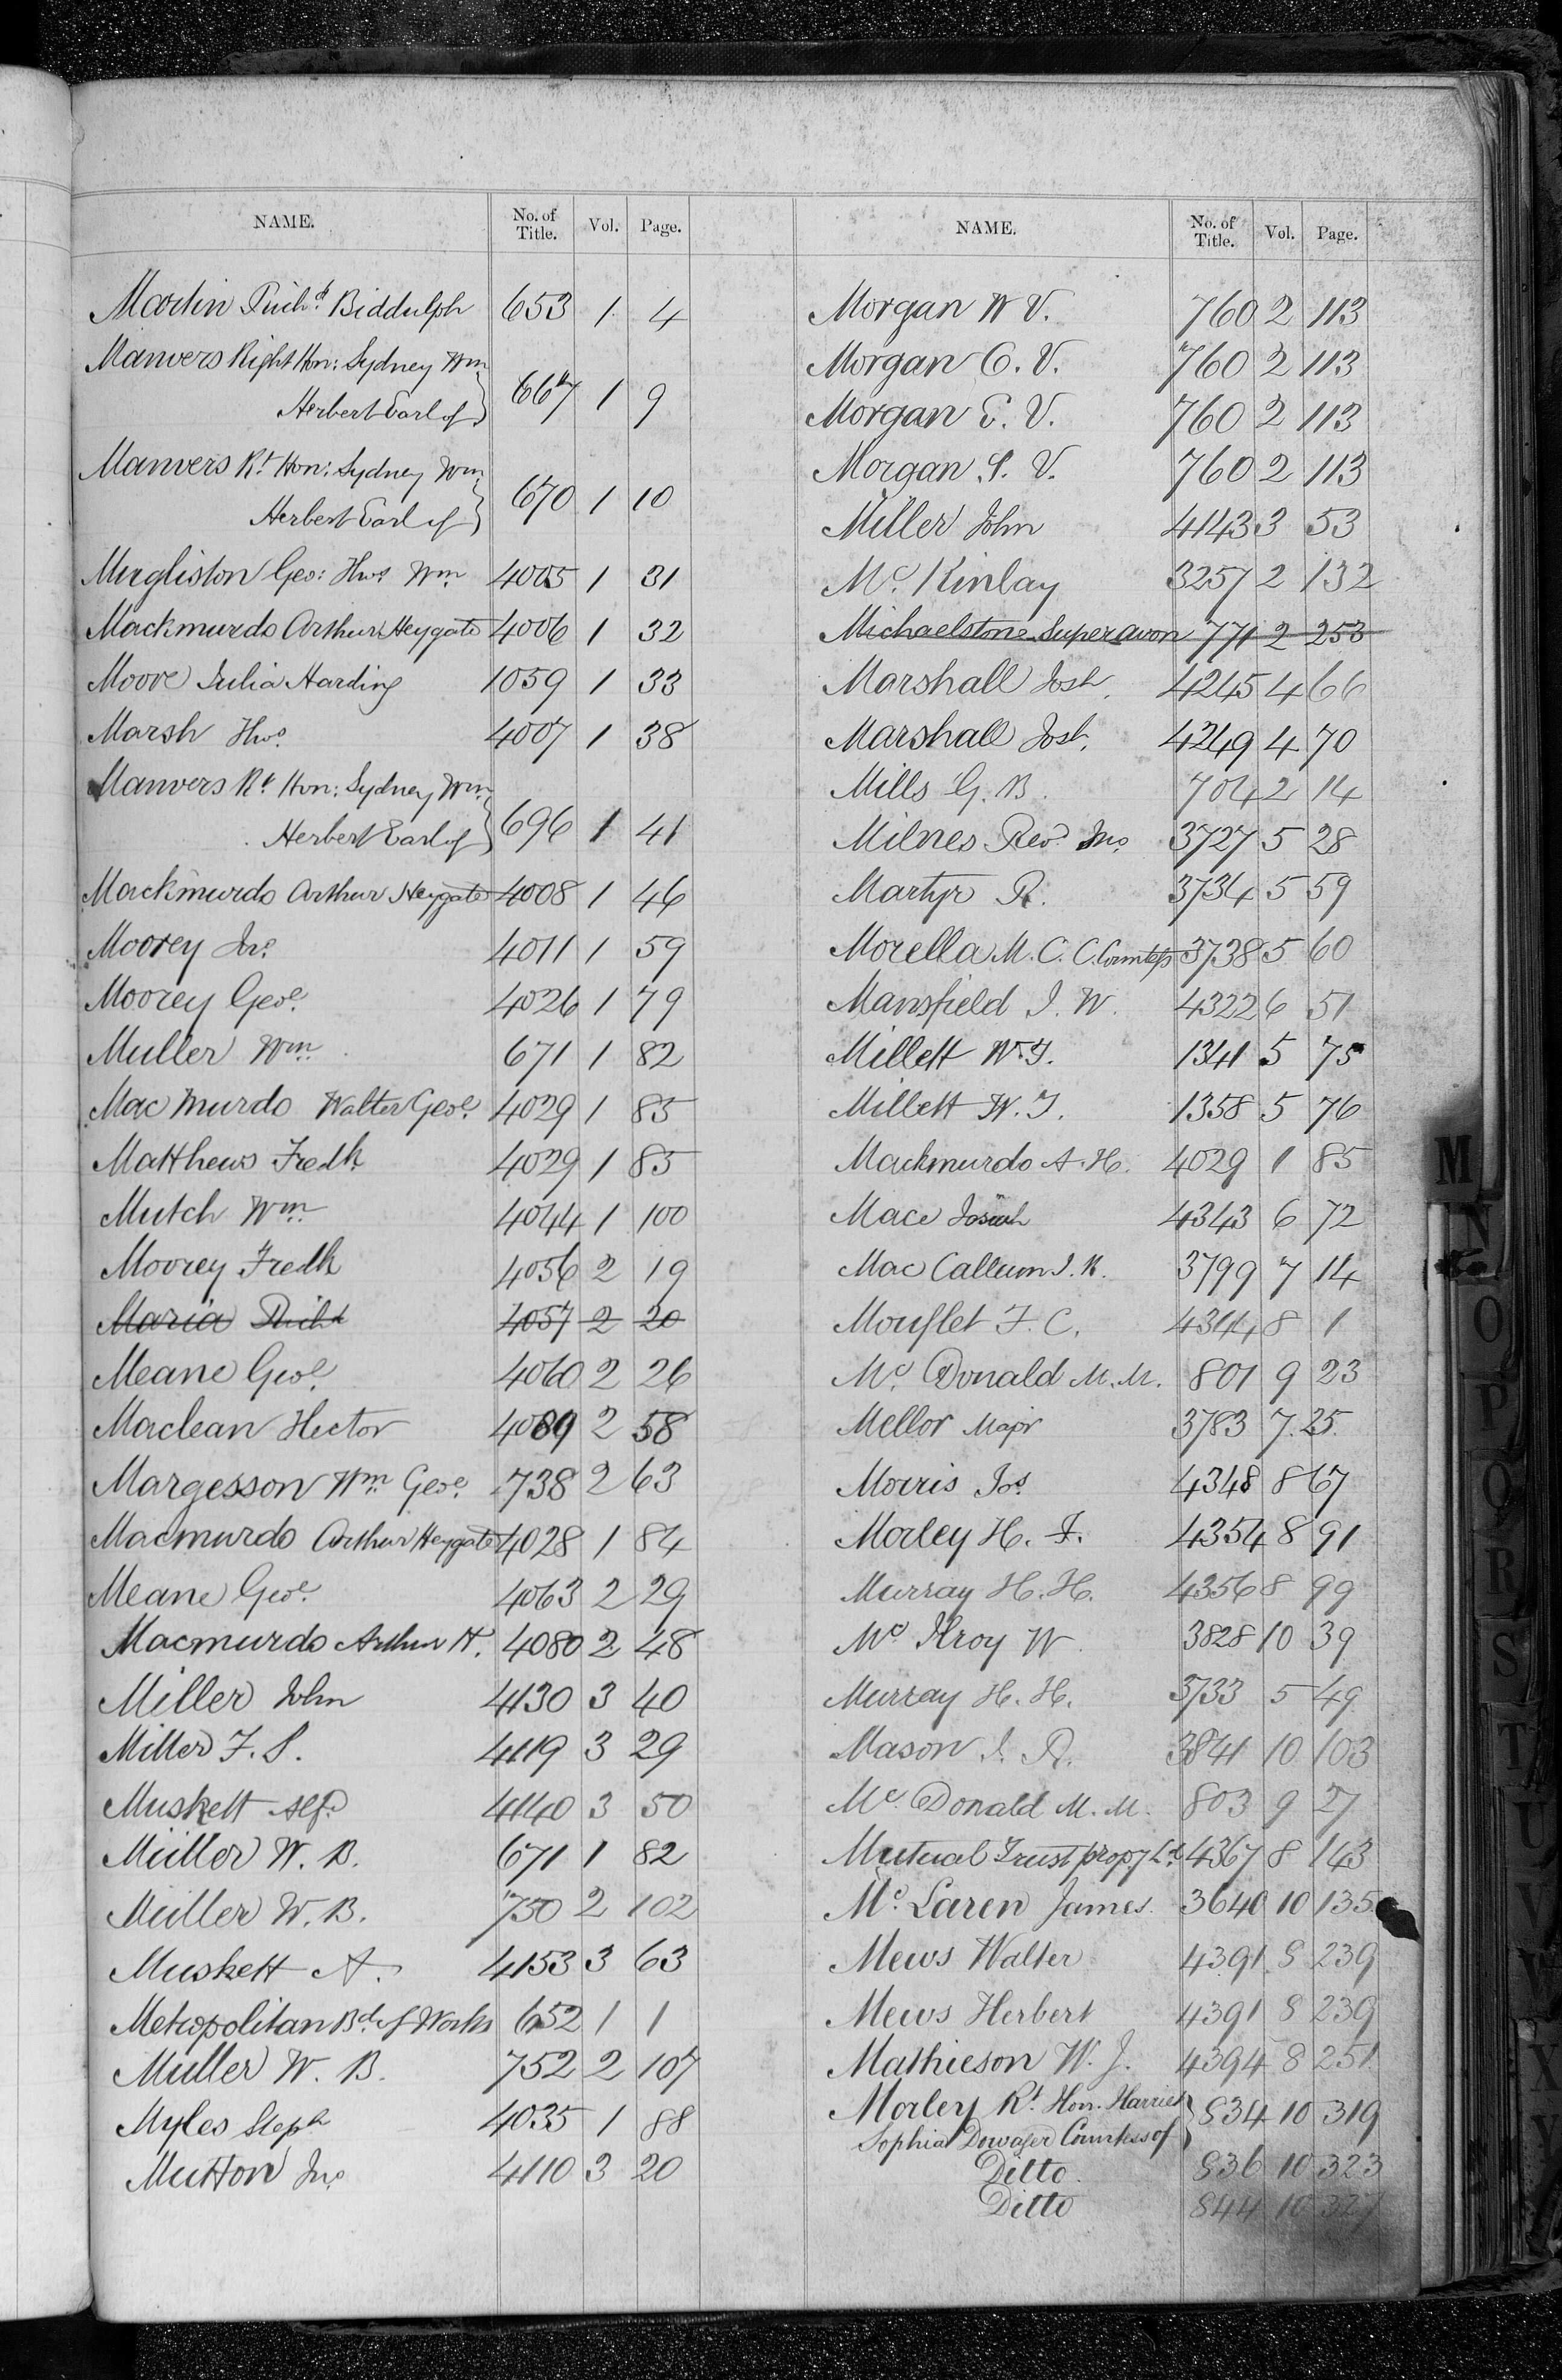 NAME. No. of Title. Vol. Page.
Martin Richd. Biddulph 653 1 4
Manvers Right Hon: Sydney Wm
Herbert Earl of } 667 1 9
Manvers Rt Hon: Sydney Wm
Herbert Earl of } 670 1 10
Mugliston Geo: Thos Wm 4005 1 31
Mackmurdo Arthur Heygate 4006 1 32
Moore Julia Harding 1059 1 33
Marsh Thos. 4007 1 38
Manvers Rt Hon: Sydney Wm
Herbert Earl of } 696 1 41
Mackmurdo Arthur Heygate 4008 1 46
Moorey Jno. 4011 1 59
Moorey Geoe. 4026 1 79
Muller Wm. 671 1 82
Mac Murdo Walter Geoe. 4029 1 85
Matthews Fredk 4029 1 85
Mutch Wm. 4044 1 100
Moorey Fredk 4056 2 19
Maria Richd 4057 2 20
Meane Geoe. 4060 2 26
Maclean Hector 4089 2 58
Margesson Wm. Geoe. 738 2 63
Macmurdo Arthur Heygate 4028 1 84
Meane Geoe. 4063 2 29
Macmurdo Arthur H. 4080 2 48
Miller John 4130 3 40
Miller F. S. 4119 3 29
Muskett Alfd 4140 3 50
Müller W. B. 671 1 82
Müller W. B. 750 2 102
Muskett A. 4153 3 63
Metropolitan Bd. of Works 652 1 1
Muller W. B. 752 2 107
Myles Steph 4035 1 88
Mutton Jno. 4110 3 20
NAME. No. of Title. Vol. Page.
Morgan W V. 760 2 113
Morgan C. V. 760 2 113
Morgan E. V. 760 2 113
Morgan S. V. 760 2 113
Miller John 4143 3 53
Mc. Kinlay 3257 2 132
Michaelstone Super Avon 771 2 253
Marshall Josh. 4245 4 66
Marshall Josh. 4249 4 70
Mills G. B. 704 2 14
Milnes Revd. Jno. 3727 5 28
Martyr R. 3734 5 59
Morella M. C. C. Countess 3738 5 60
Mansfield J. W. 4322 6 51
Millett W. T. 1341 5 75
Millett W. T. 1358 5 76
Mackmurdo A. H. 4029 1 85
Mace Josiah 4343 6 72
Mac Callum J. K. 3799 7 14
Mouflet F. C. 4344 8 1
Mc. Donald M. M. 801 9 23
Mellor Major 3783 7. 25.
Morris Jos. 4348 8 67
Morley H. F. 4354 8 91
Murray H. H. 4356 8 99
Mc. Ilroy W 3828 10 39
Murray H. H. 3733 5 49
Mason J. R. 3841 10 103
Mc. Donald M. M. 803 9 27
Mutual Trust propy Ld. 4367 8 143
Mc. Laren James. 3640 10 135
Mews Walter 4391 8 239
Mews Herbert 4391 8 239
Mathieson W. J. 4394 8 251
Morley Rt. Hon. Harriet
Sophia Dowager Countess of } 834 10 319
Ditto. 836 10 323
Ditto 844 10 327
M
N
O
P
Q
R
S
T
U
V
W
X
Y